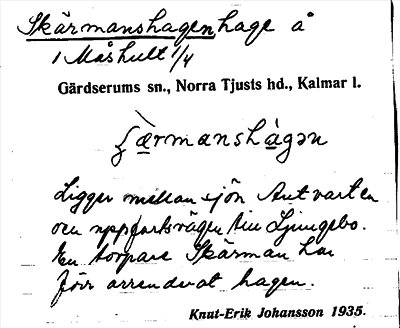 Skärmanshagen hage å
1 Måshult 1/4
Gärdserums sn., Norra Tjusts hd., Kalmar l.
ʃæ̀rmanshàgən
Ligger mellan sjön Antvarten
och uppfartsvägen till Ljungsbo.
En torpare Skärman har
förr arrenderat hagen.
Knut-Erik Johansson 1935.